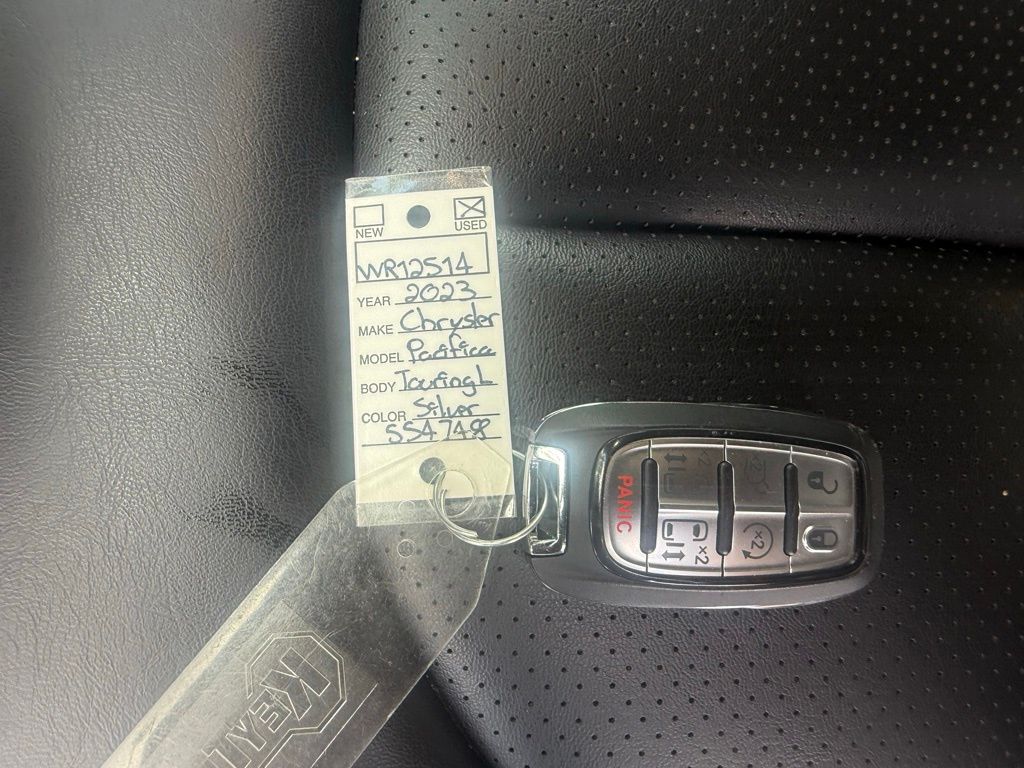 NEW USED
WR12514
YEAR 2023
MAKE Chrysler
MODEL Pacifica
BODY Touring L
COLOR Silver
554749
PANIC
×2
×2